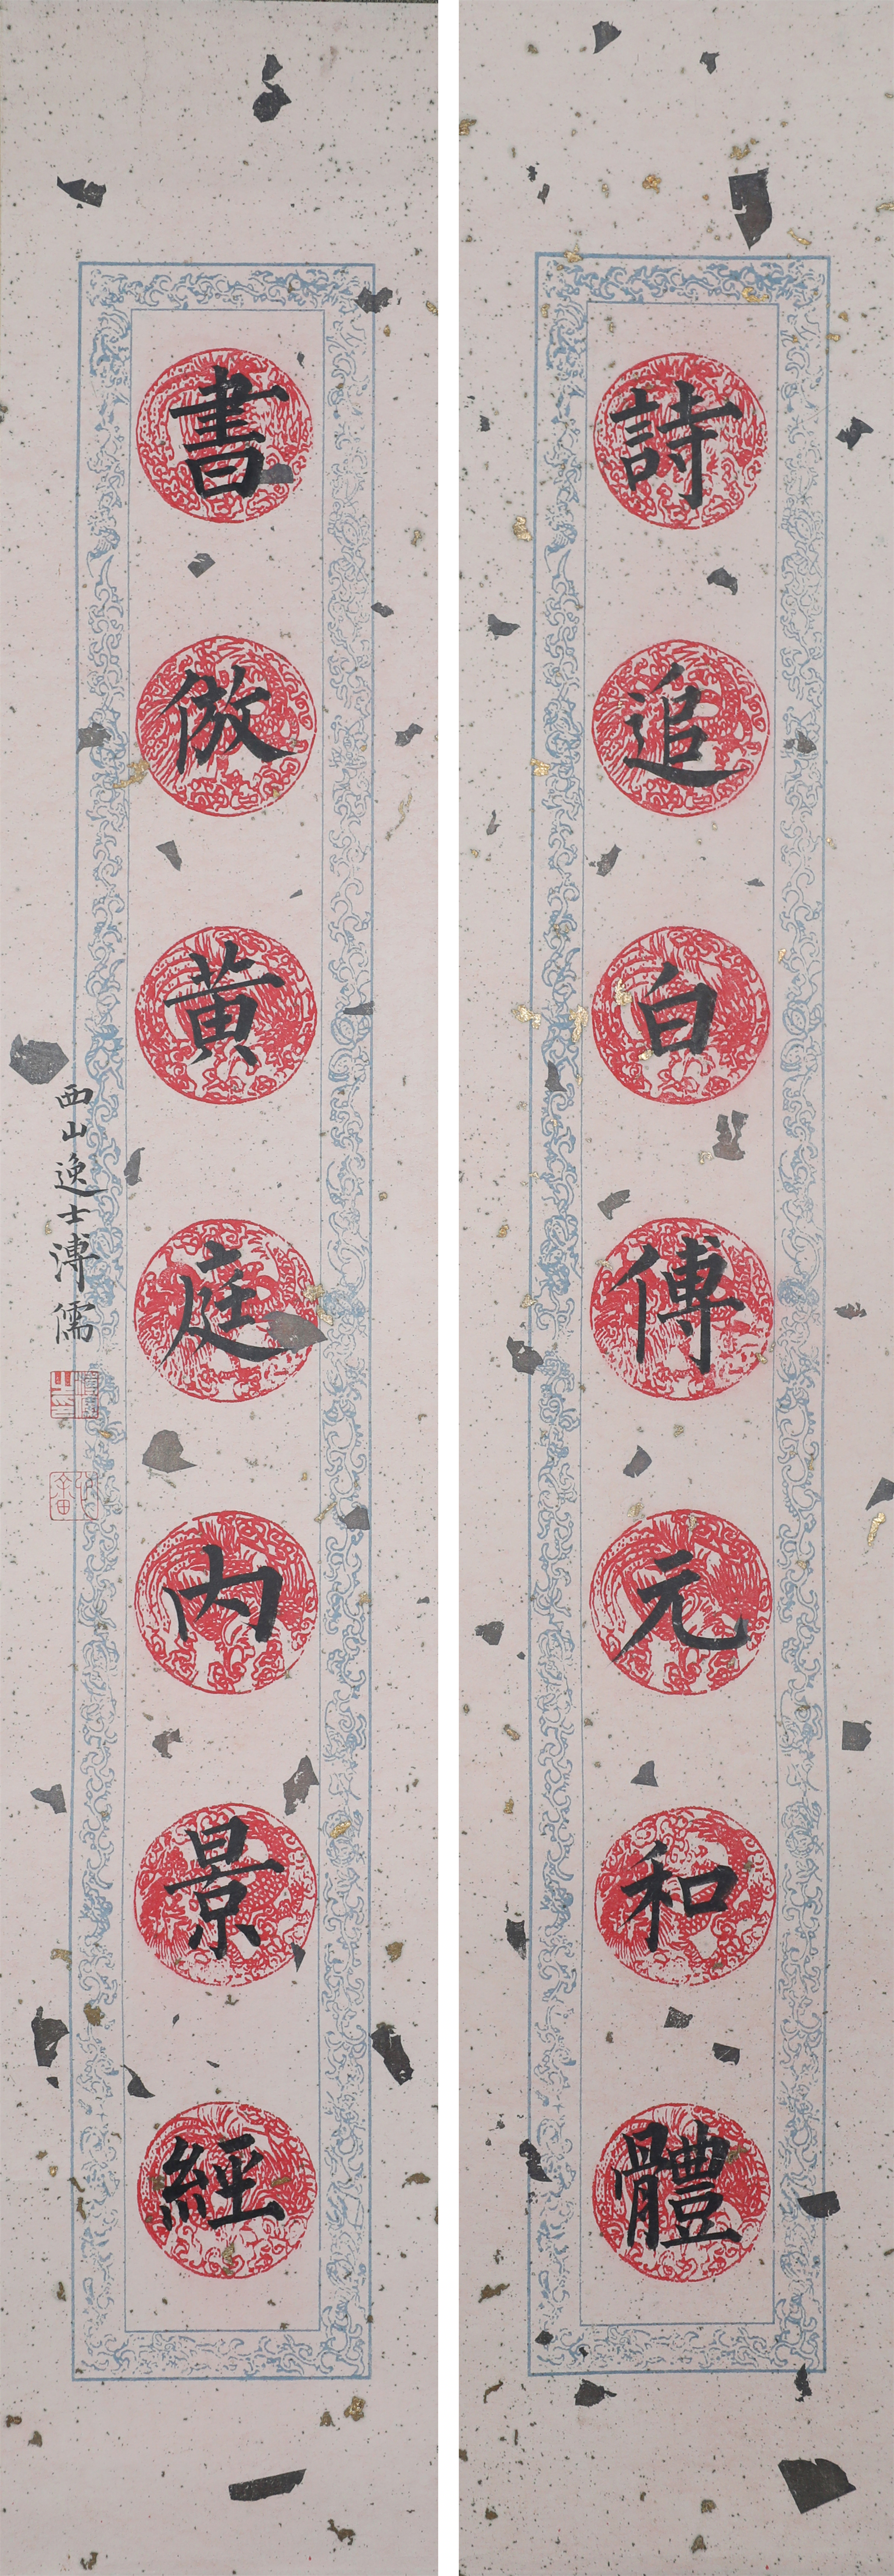 詩追白傅元和體
書倣黄庭内景經
西山逸士溥儒